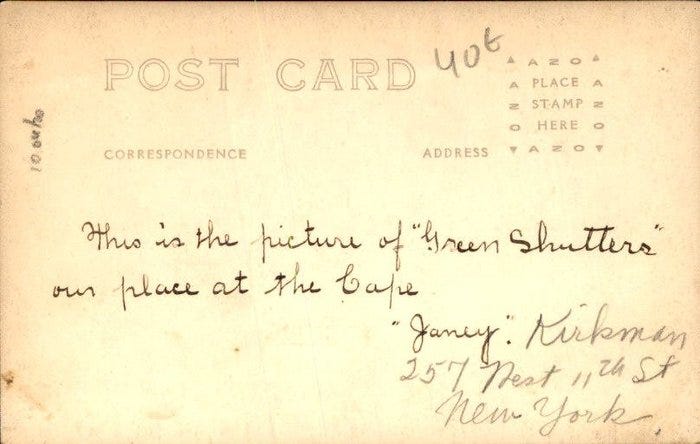 POST CARD
40¢
AZO
PLACE
STAMP
HERE
AZO
CORRESPONDENCE
ADDRESS
This is the picture of "Green Shutters"
our place at the Cape
"Janey". Kirkman
257 West 11th St
New York